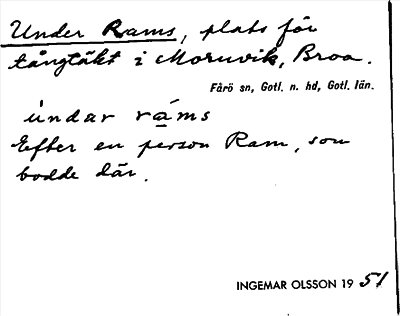 Under Rams, plats för
tångtäkt i Moruvik, Broa.
Fårö sn, Gotl. n. hd, Gotl. län.
úndar rá̲ms
Efter en person Ram, som
bodde där.
INGEMAR OLSSON 19 51